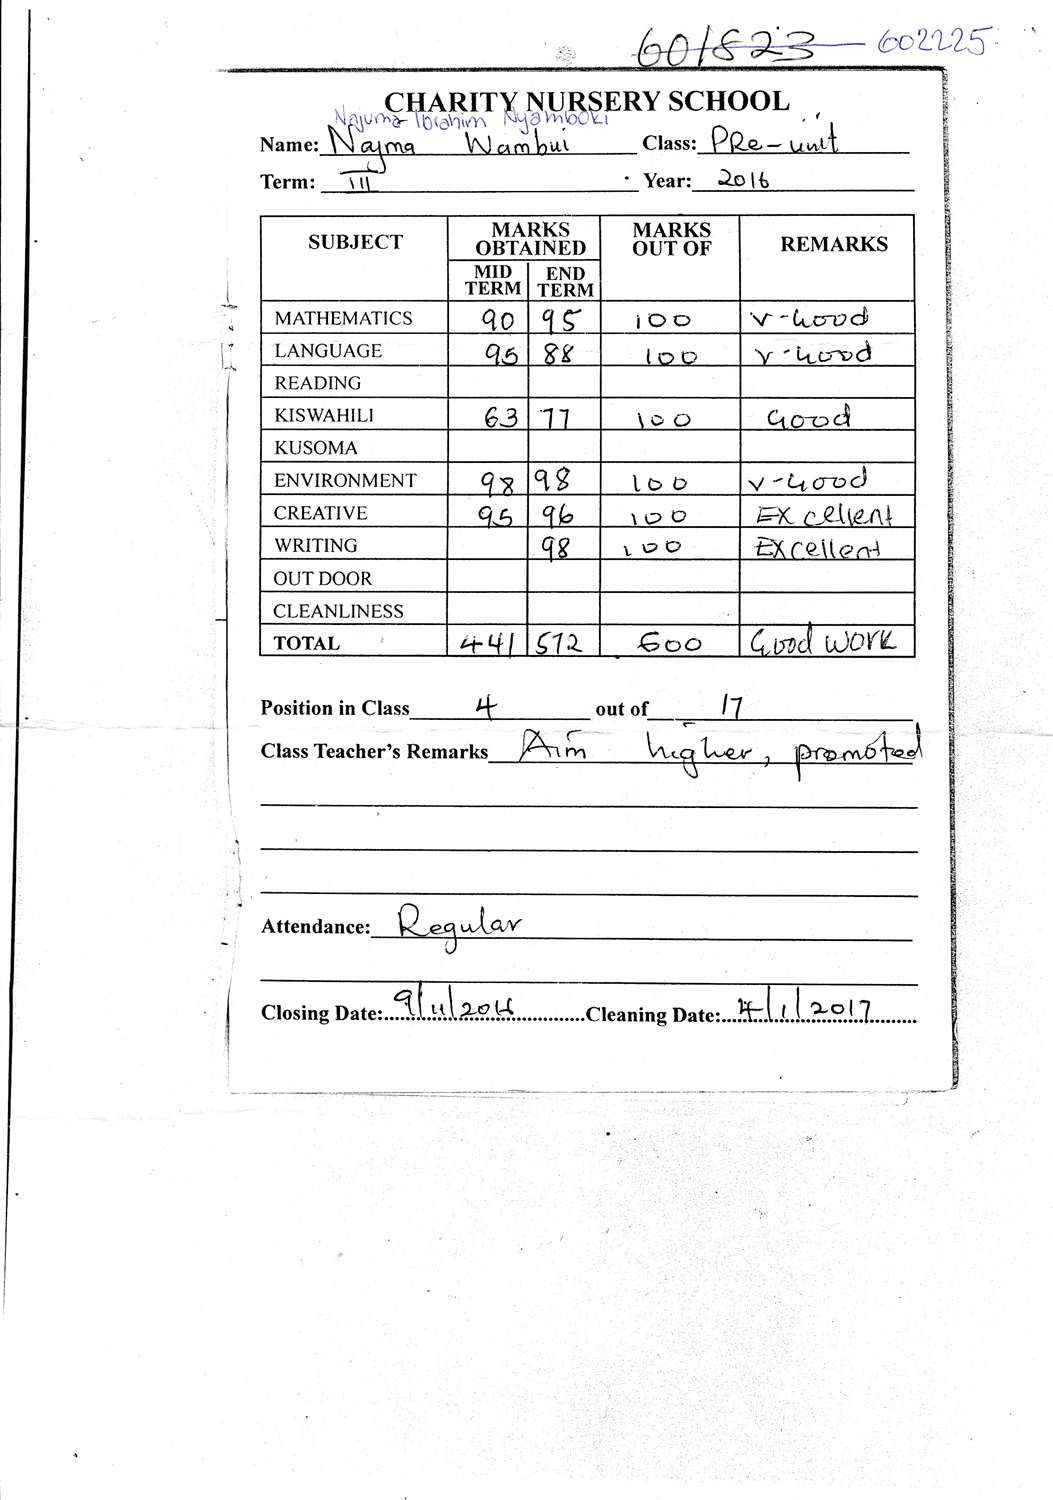 601823 602225
CHARITY NURSERY SCHOOL
Najuma Ibrahim Nyamboki
Name: Najma Wambui Class: PRe-unit
Term: III Year: 2016
SUBJECT MARKS OBTAINED MARKS OUT OF REMARKS
MID TERM END TERM
MATHEMATICS 90 95 100 V-Good
LANGUAGE 95 88 100 V-Good
READING
KISWAHILI 63 77 100 Good
KUSOMA
ENVIRONMENT 98 98 100 V-Good
CREATIVE 95 96 100 EXcellent
WRITING 98 100 EXcellent
OUT DOOR
CLEANLINESS
TOTAL 441 512 600 Good WORK
Position in Class 4 out of 17
Class Teacher's Remarks Aim higher, promoted
Attendance: Regular
Closing Date: 9/11/2016 Cleaning Date: 4/1/2017